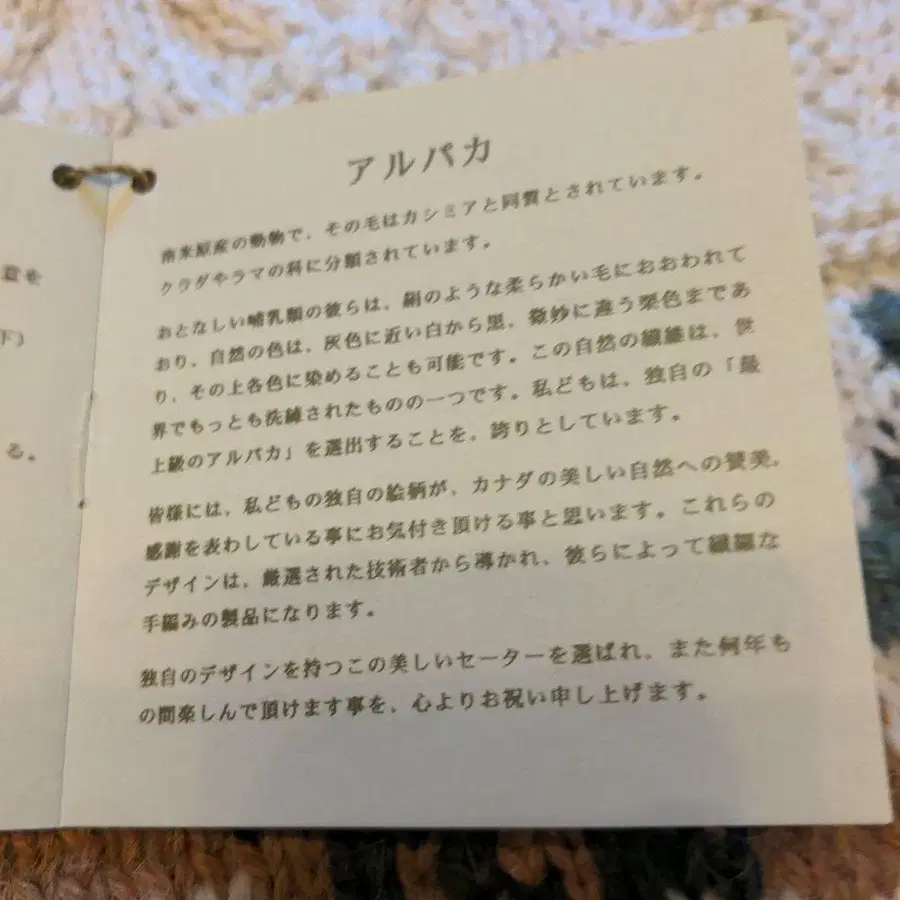 アルパカ
南米原産の動物で、その毛はカシミアと同質とされています。
クラダやラマの科に分類されています。
おとなしい哺乳類の彼らは、絹のような柔らかい毛におおわれて
おり、自然の色は、灰色に近い白から黒、微妙に違う栗色まであ
り、その上各色に染めることも可能です。この自然の繊維は、世
界でもっとも洗練されたものの一つです。私どもは、独自の「最
上級のアルパカ」を選出することを、誇りとしています。
皆様には、私どもの独自の絵柄が、カナダの美しい自然への賛美、
感謝を表わしている事にお気付き頂ける事と思います。これらの
デザインは、厳選された技術者から導かれ、彼らによって繊細な
手編みの製品になります。
独自のデザインを持つこの美しいセーターを選ばれ、また何年も
の間楽しんで頂けます事を、心よりお祝い申し上げます。
を
下)
る。